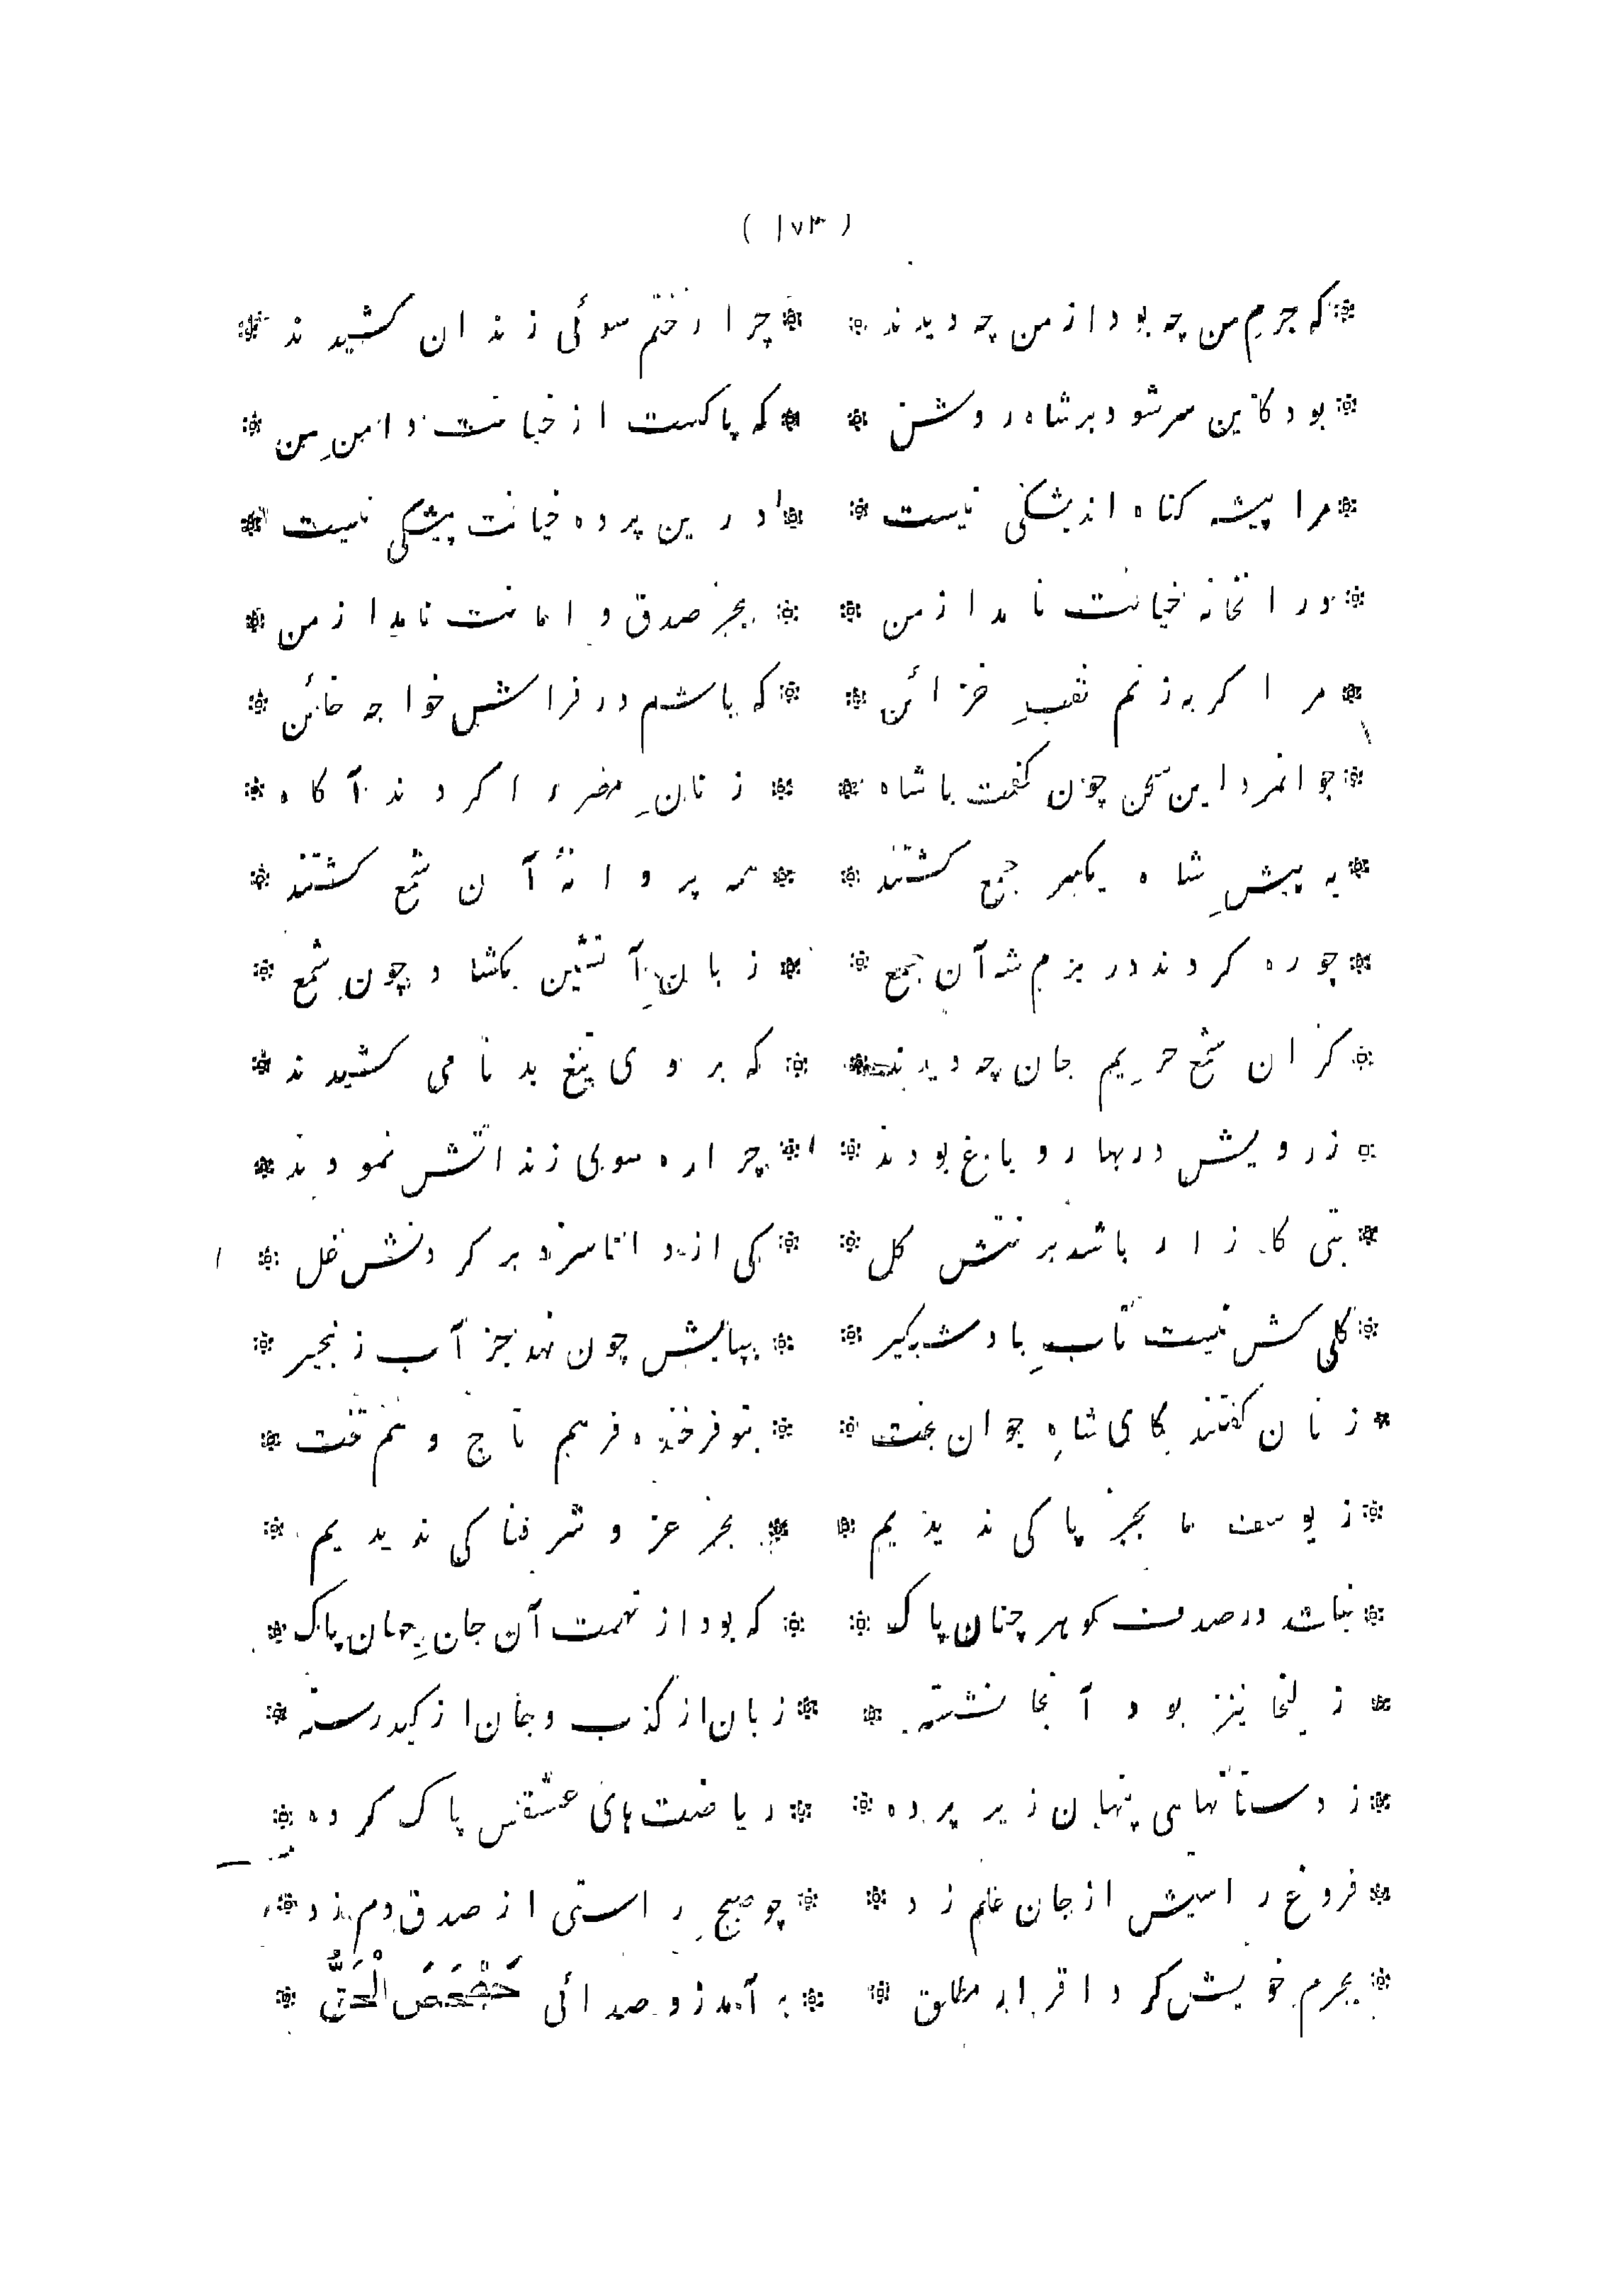 ( ١٧٣ )
* که جرم من چه بود از من چه دیدند * * چرا رختم سوئی زندان کشیدند *
* بود کاین سر شود بر شاه روشن * * که پاکست از خیانت دامنِ من *
* مرا پیشه کناه اندیشکی نیست * * در این پرده خیانت پیشکی نیست *
* در انخانه خیانت نامد از من * * بجز صدق و امانت نامد از من *
* مرا کر به زنم نقبِ خزائن * * که باشم در فراش خواجه خائن *
* جوانمرد این سخن چون کفت با شاه * * زنانِ مصر را کردند آکاه *
* به پیشِ شاه یکسر جمع کشتند * * همه پروانهٔ آن شمع کشتند *
* چو ره کردند در بزم شه آن جمع * * زبانِ آتشین بکشاد چون شمع *
* کزان شمع حریم جان چه دیدند * * که بر وی تیغ بدنامی کشیدند *
* ز رویش در بهار و باغ بودند * * چرا ره سوی زندانش نمودند *
* بتی کازار باشد بر تنش کل * * کی از دانا سزد بر کردنش غل *
* کلی کش نیست تابِ باد شبکیر * * بپایش چون نهد جز آب زنجیر *
* زنان کفتند کای شاهِ جوان بخت * * بتو فرخنده فر هم تاج و هم تخت *
* ز یوسف ما بجز پاکی ندیدیم * * بجز عز و شرفناکی ندیدیم *
* نباشد در صدف کوهر چنان پاک * * که بود از تهمت آن جانِ جهان پاک *
* زلیخا نیز بود آنجا نشسته * * زبان از کذب و جان از کید رسته *
* ز دستانهای پنهان زیر پرده * * ریاضت‌های عشقش پاک کرده *
* فروغ راستیش از جان علم زد * * چو صبح راستی از صدق دم زد *
* بجرم خویش کرد اقرار مطلق * * برآمد زو صدائی حَصْحَصَ الْحَقُّ *